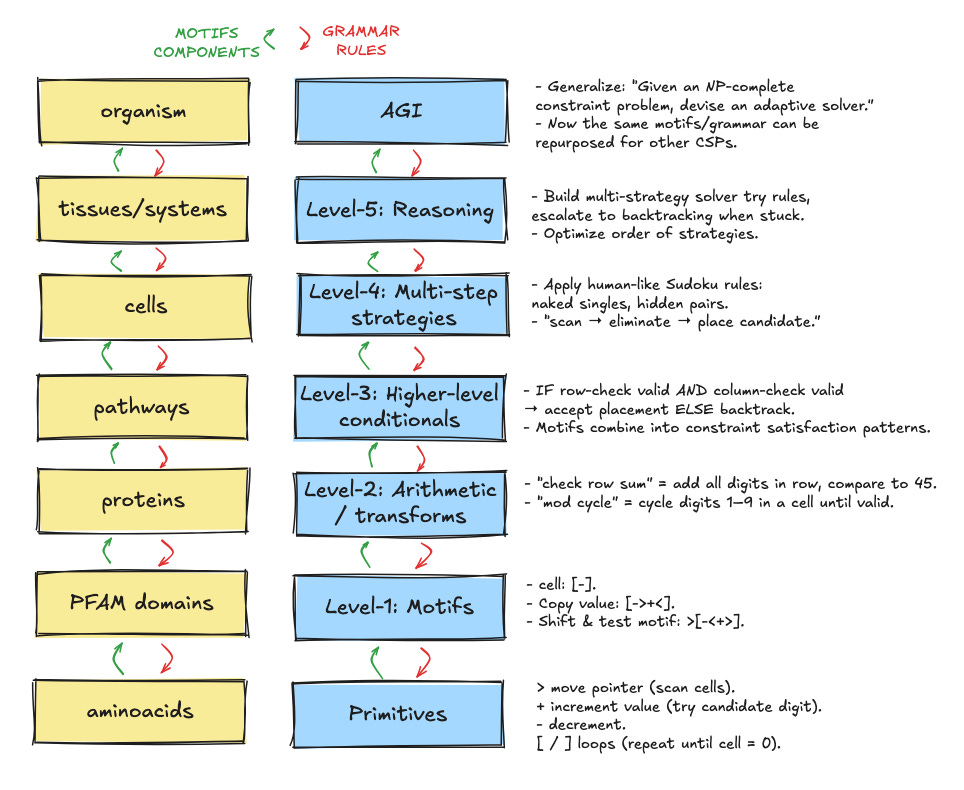 MOTIFS
COMPONENTS
GRAMMAR
RULES
organism
AGI
- Generalize: "Given an NP-complete
constraint problem, devise an adaptive solver."
- Now the same motifs/grammar can be
repurposed for other CSPs.
tissues/systems
Level-5: Reasoning
- Build multi-strategy solver try rules,
escalate to backtracking when stuck.
- Optimize order of strategies.
cells
Level-4: Multi-step
strategies
- Apply human-like Sudoku rules:
naked singles, hidden pairs.
- "scan → eliminate → place candidate."
pathways
Level-3: Higher-level
conditionals
- IF row-check valid AND column-check valid
→ accept placement ELSE backtrack.
- Motifs combine into constraint satisfaction patterns.
proteins
Level-2: Arithmetic
/ transforms
- "check row sum" = add all digits in row, compare to 45.
- "mod cycle" = cycle digits 1–9 in a cell until valid.
PFAM domains
Level-1: Motifs
- cell: [-].
- Copy value: [->+<].
- Shift & test motif: >[-<+>].
aminoacids
Primitives
> move pointer (scan cells).
+ increment value (try candidate digit).
- decrement.
[ / ] loops (repeat until cell = 0).